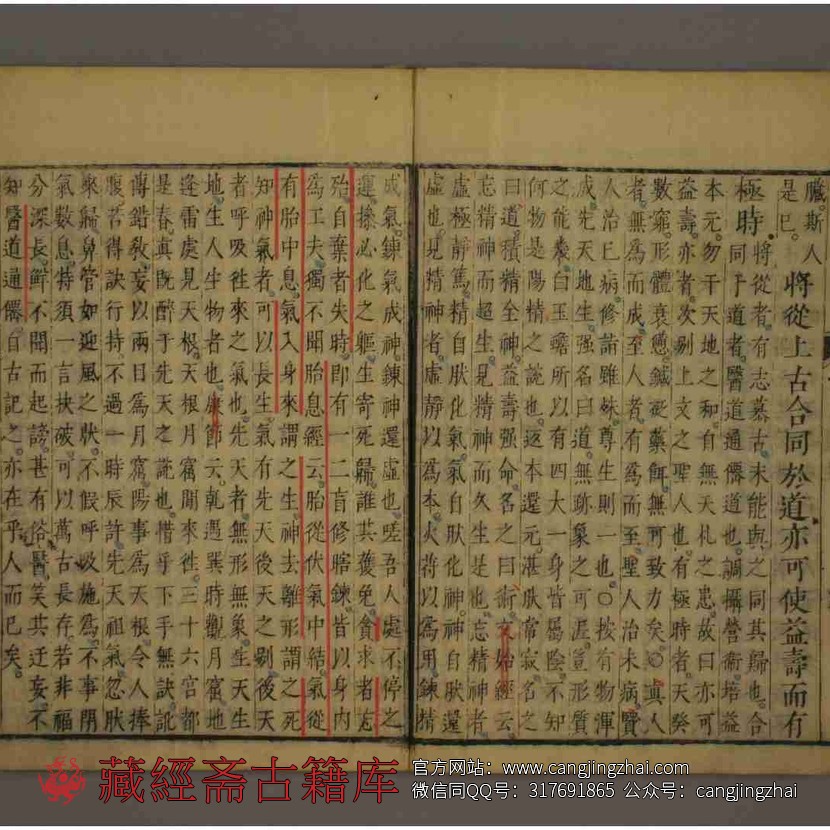 臟斯人
是已 將從上古合同於道亦可使益壽而有
極時 將從者有志慕古未能與之同其歸也合
同于道者醫道通僊道也調攝營衛培益
本元勿干天地之和自無夭札之患故曰亦可
益壽亦者次別上文之聖人也有極時者天癸
數窮形體衰憊鍼砭藥餌無可致力矣○眞人
者無爲而成至人者有爲而至聖人治未病賢
人治已病修詣雖殊尊生則一也○按有物渾
成先天地生强名曰道無跡象之可涯豈形質
之能彖白玉蟾所以有四大一身皆屬陰不知
何物是陽精之說也返本還元湛肰常寂名之
曰道積精全神益壽强命名之曰術文始經云
忘精神而超生見精神而久生是也忘精神者
虛極靜篤精自肰化氣氣自肰化神神自肰還
虛也見精神者虛靜以爲本火符以爲用鍊精
成氣鍊氣成神鍊神還虛也嗟吾人處不停之
運操必化之軀生寄死歸誰其獲免貪求者志
殆自棄者失時即有一二盲修瞎鍊皆以身內
爲工夫獨不聞胎息經云胎從伏氣中結氣從
有胎中息氣入身來謂之生神去離形謂之死
知神氣者可以長生氣有先天後天之別後天
者呼吸徃來之氣也先天者無形無象生天生
地生人生物者也康節云乾遇巽時觀月窟地
逢雷處見天根天根月窟閒來徃三十六宮都
是春眞既醉于先天之說也惜乎下手無訣訛
傳錯敎妄以兩日爲月窟陽事爲天根令人捧
腹若得訣行持不過一時辰許先天祖氣忽肰
聚歸臾管如迎風之狀不假呼吸施爲不事閉
氣數息特須一言抉破可以萬古長存若非福
分深長鮮不聞而起謗甚有俗醫笑其迂妄不
知醫道通僊自古記之亦在乎人而已矣
藏經斋古籍库
官方网站：www.cangjingzhai.com
微信同QQ号：317691865 公众号：cangjingzhai